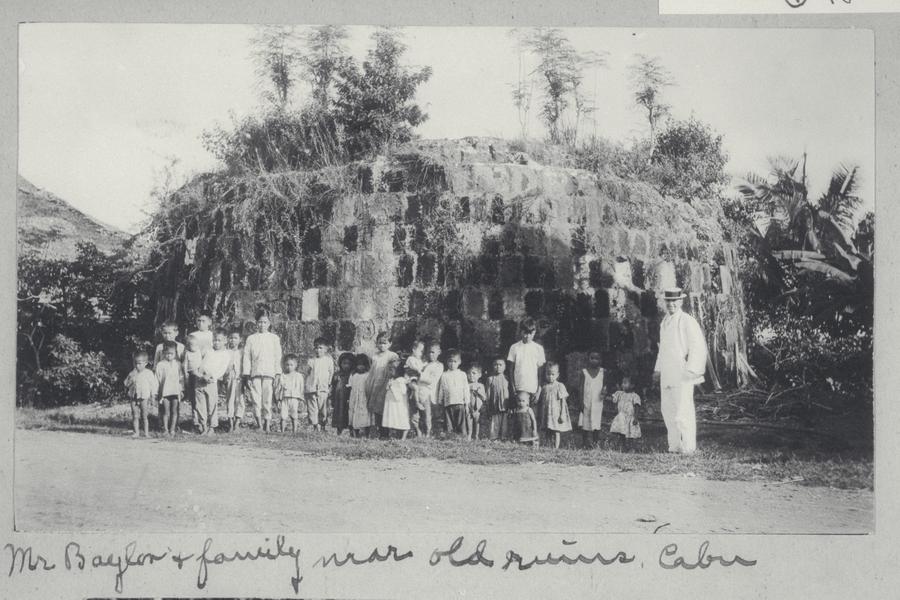 Mr Baylor & family near old ruins, Cabu